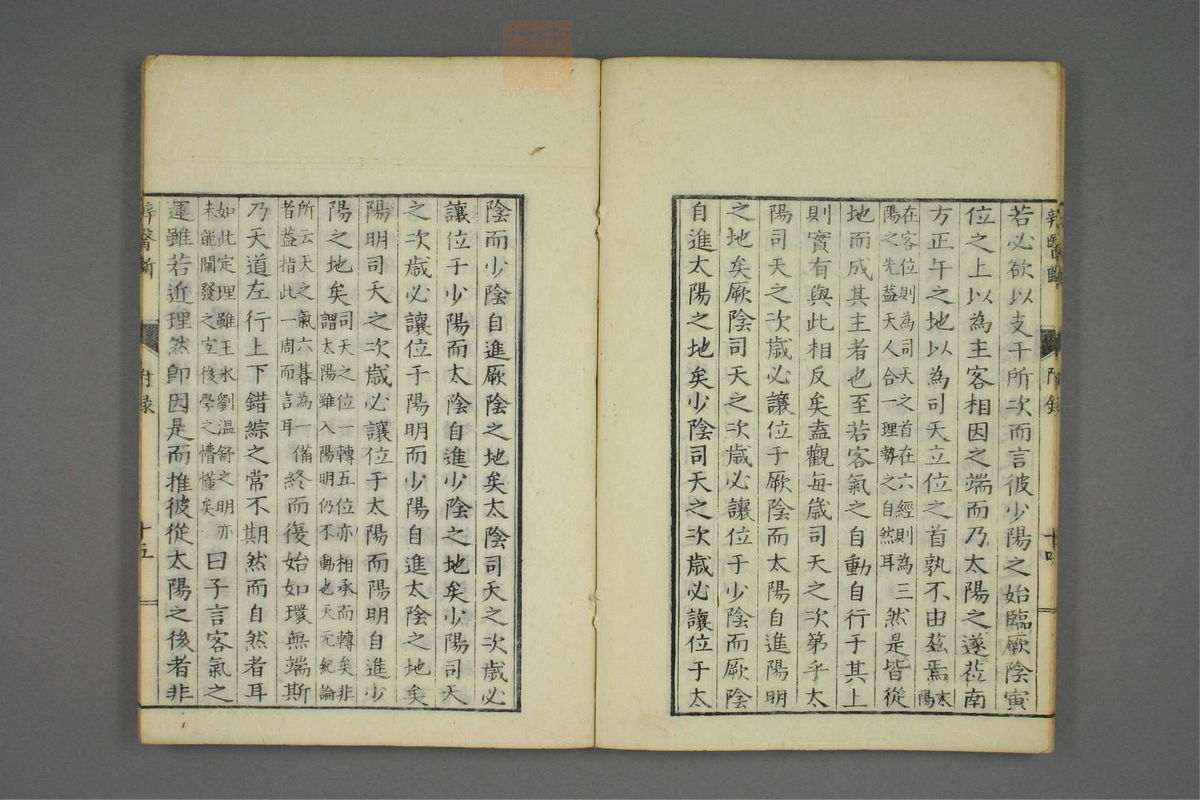 若必欲以支干所次而言彼少陽之始臨厥陰寅
位之上以為主客相因之端而乃太陽之遂莅南
方正午之地以為司天立位之首孰不由茲焉太陽
在客位則為司天之首在六經則為三
陽之先葢天人合一理勢之自然耳
然是皆從
地而成其主者也至若客氣之自動自行于其上
則實有與此相反矣盍觀每歲司天之次第乎太
陽司天之次歲必讓位于厥陰而太陽自進陽明
之地矣厥陰司天之次歲必讓位于少陰而厥陰
自進太陽之地矣少陰司天之次歲必讓位于太
附錄
陰而少陰自進厥陰之地矣太陰司天之次歲必
讓位于少陽而太陰自進少陰之地矣少陽司天
之次歲必讓位于陽明而少陽自進太陰之地矣
陽明司天之次歲必讓位于太陽而陽明自進少
陽之地矣
司天之位一轉五位亦相承而轉矣非
謂太陽雖入陽明仍不動也天元紀論
所云天之氣六朞為一
者葢指此一周而言耳
備終而復始如環無端斯
乃天道左行上下錯綜之常不期然而自然者耳
如此定理雖王氷劉溫舒之明亦
未能闡發之宐後學之懵懂矣
曰子言客氣之
運雖若近理然卽因是而推彼從太陽之後者非
醫斷
附錄
十五